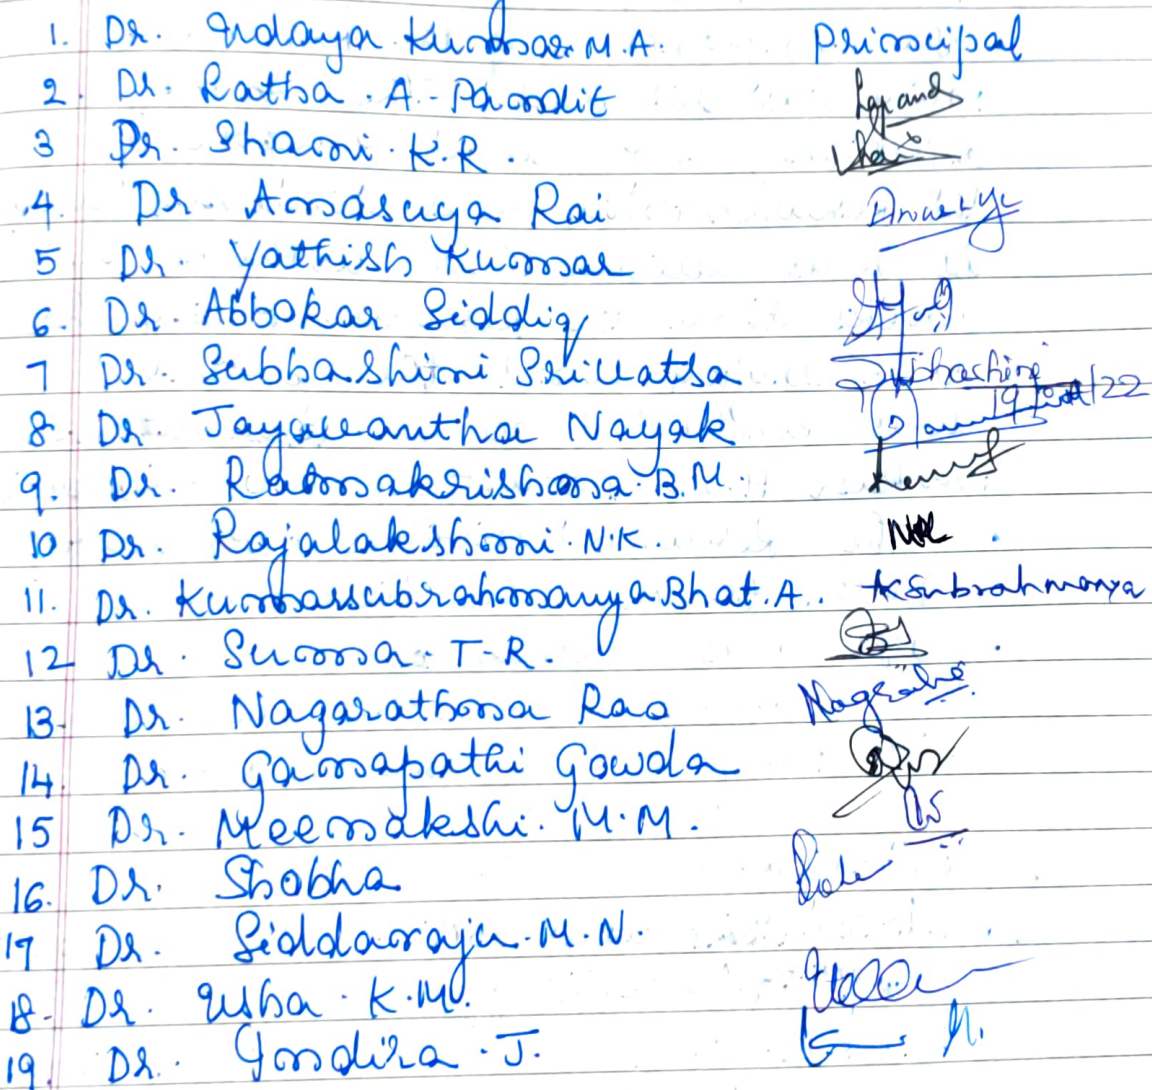 1. Dr. Udaya Kumar M.A. Principal
2. Dr. Latha . A. Pandit
3 Dr. Shani . K.R.
4. Dr. Anasuya Rai
5 Dr. Yathish Kumar
6. Dr. Abbokar Siddiq
7 Dr. Subhashini Srivatsa Subhashini
8. Dr. Jayavantha Nayak 19/22
9. Dr. Ramakrishna B.M.
10 Dr. Rajalakshmi N.K. NK
11. Dr. Kumarsubrahmanya Bhat. A. AKSubrahmanya
12 Dr. Suma. T.R.
13. Dr. Nagarathna Rao
14. Dr. Ganapathi Gowda
15 Dr. Meenakshi. M.M.
16. Dr. Shobha
17 Dr. Siddaraju. M.N.
18. Dr. Usha. K.M.
19. Dr. Indira. J.